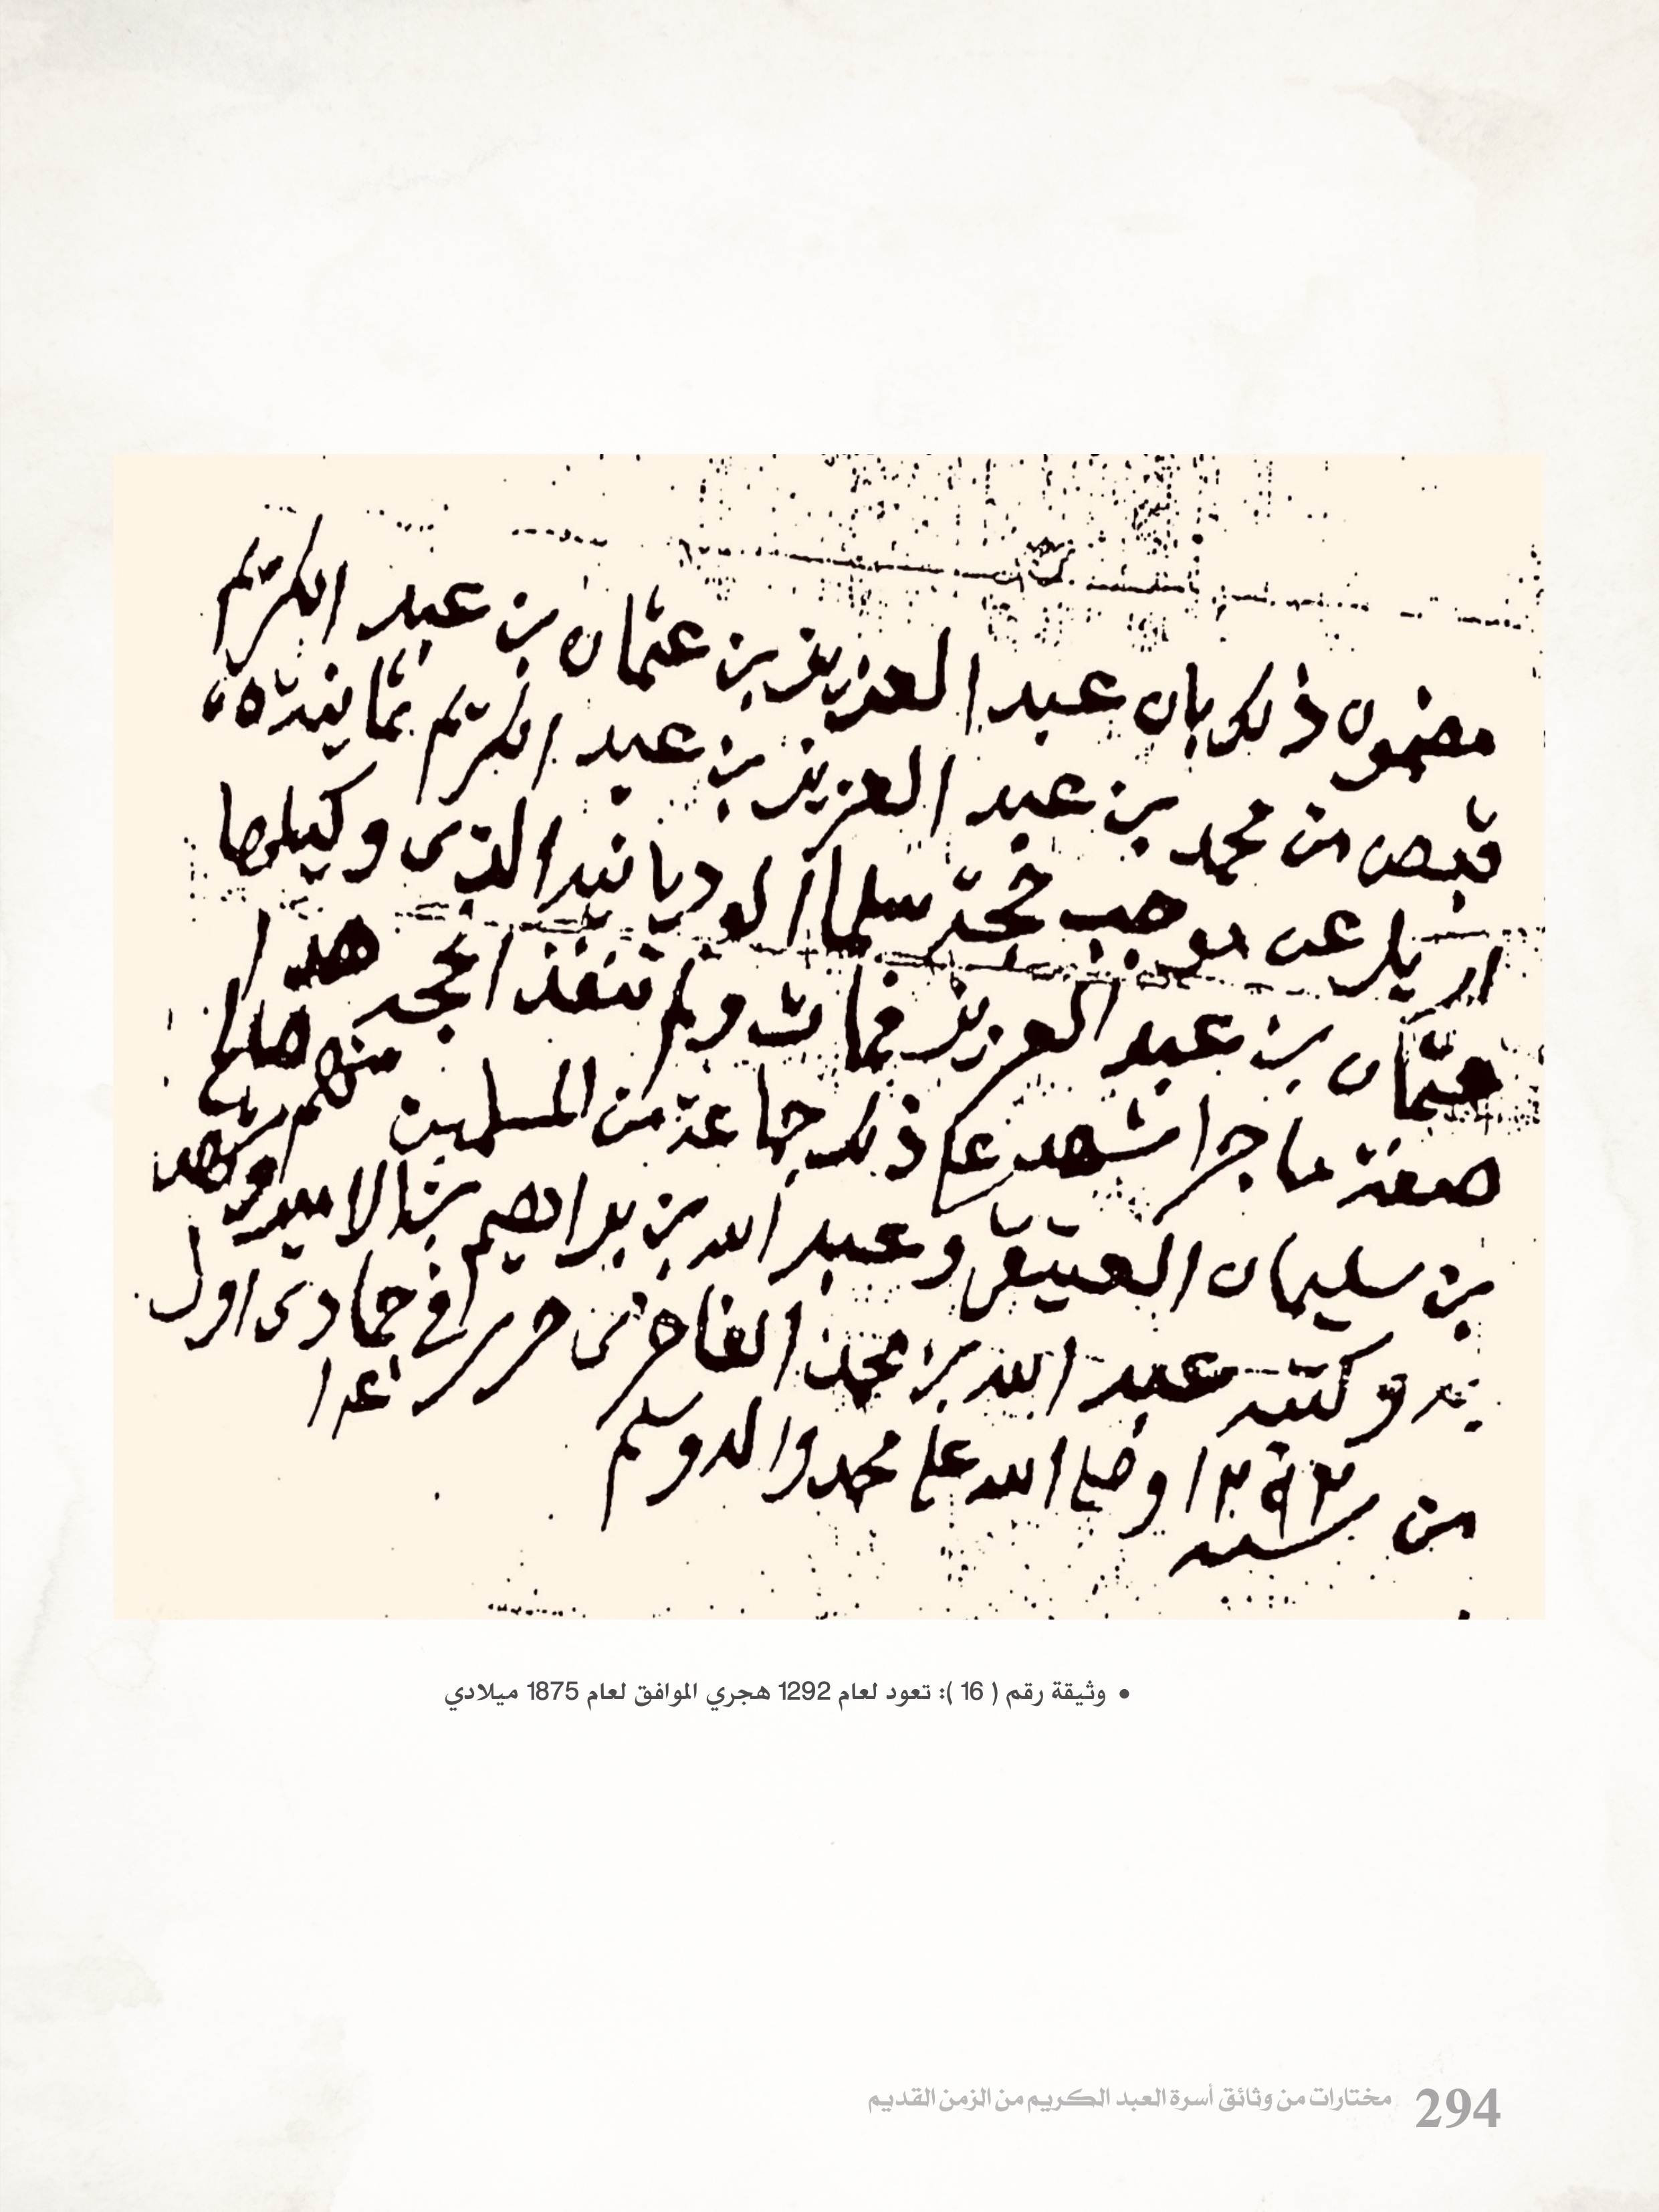 مضمون ذلك بان عبد العزيز بن عثمان بن عبد الكريم
قبض من محمد بن عبد العزيز بن عبد الكريم ثمانية
اريل عن موجب حجة سلما الذي وكيلها
عثمان بن عبد العزيز فمات ولم تنفذ الحجه هذا
صفة ما جرا شهد على ذلك جماعة من المسلمين منهم صالح
بن سليمان العتيق وعبد الله بن براهيم الامير وشهد
به وكتبه عبد الله بن محمد الفاخري حرر في جمادى اول
من سنة ١٢٩٢ وصلى الله على محمد واله وسلم
• وثيقة رقم ( 16 ): تعود لعام 1292 هجري الموافق لعام 1875 ميلادي
294 مختارات من وثائق أسرة العبد الكريم من الزمن القديم